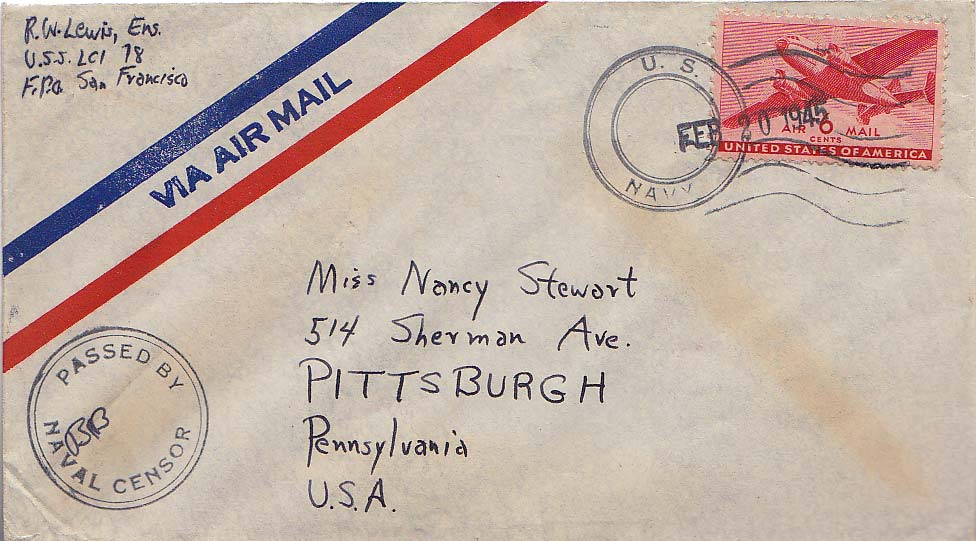 R.W. Lewis, Ens.
U.S.S. LCI 78
F.P.O. San Francisco
VIA AIR MAIL
U. S.
NAVY
FEB 20 1945
AIR 6 MAIL
CENTS
UNITED STATES OF AMERICA
Miss Nancy Stewart
514 Sherman Ave.
PITTSBURGH
Pennsylvania
U.S.A.
PASSED BY
NAVAL CENSOR